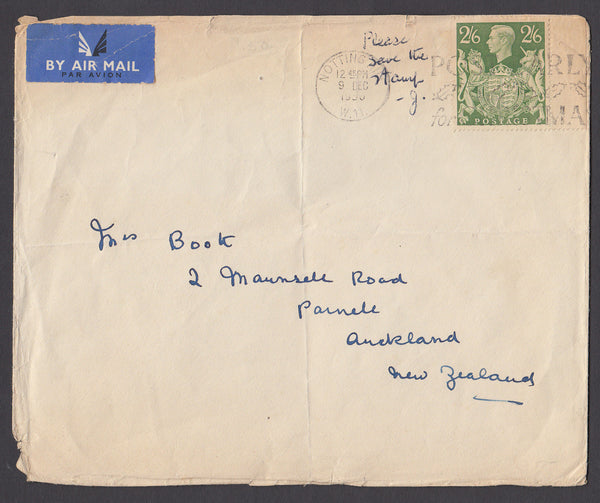 BY AIR MAIL
PAR AVION
Please
save the
stamp
-J.
NOTTING
12.45PM
9 DEC
W.11.
2/6 2/6
POSTAGE
PO RLY
for MA
Mrs Book
2 Maunsell Road
Parnell
Auckland
New Zealand